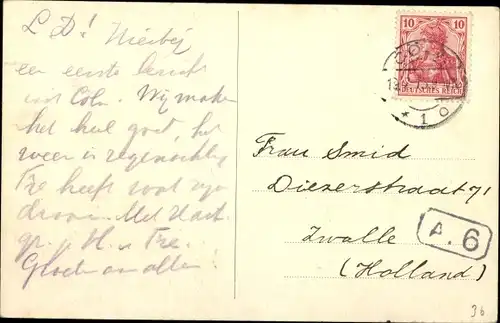 L D! Hierbij
een eerste bericht
uit Cöln. Wij maken
het heel goed, het
weer is regenachtig
Tre heeft
droom. Met Hart.
gr. v. H. en Tre.
Groeten aan allen.
10 10
DEUTSCHES REICH
CÖLN
* 1 o
Frau Smid
Diezerstraat 71
Zwolle
(Holland)
A. 6
36